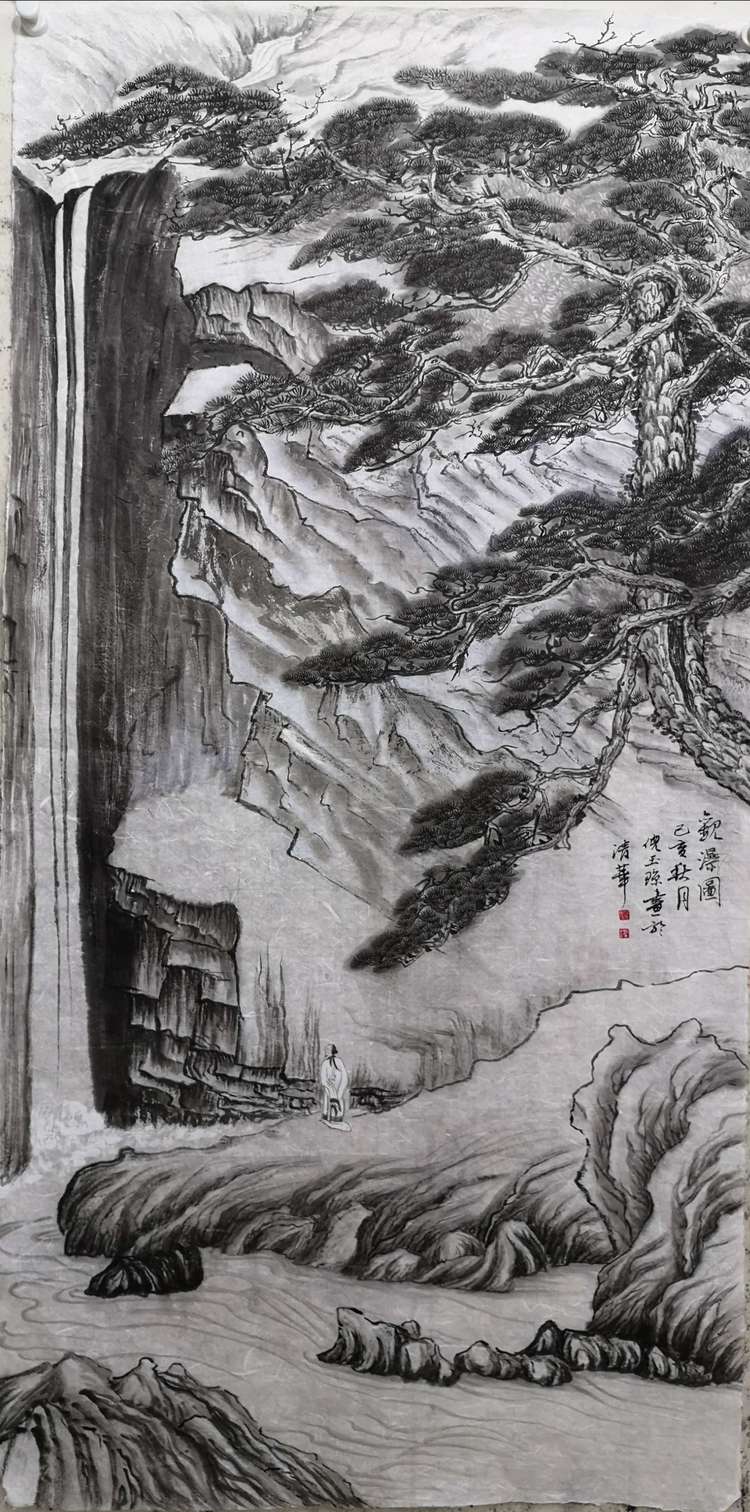 觀瀑圖
己亥秋月
倪玉琼畫於
清華